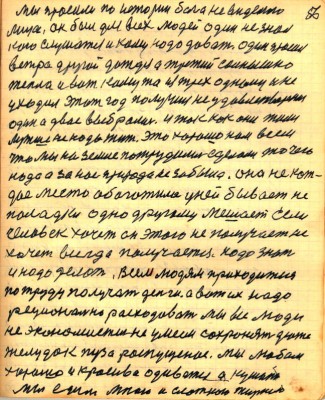 56
Мы просили по истории бога не видемого
лица, он был для всех людей один не знал
кого слушать и кому надо давать. один просил
ветра другой дождя а третий солнышко
тепла и вот кому та и трех одному и не
уходил Этот год получили
один а двое выбросил. и так как они жили
лучше не надо жит. Это хорошо нам всем
что мы на земле потрудились сделали то чего
надо а за нас природа не забыла. она не кот-
дое место обогатило у ней бывает не
поладки одно другому мешает Если
человек хочет он этого не получает не
хочет всегда получается. надо знат
и надо делат. Всем людям приходится
по труду получат денги. а вот их надо
рационално расходоват мы все люди
не экономисты не умеем сохранят дните
желудок пуза роспущеное. мы любим
хорошо и красиво одиватся а кушать
мы едим много и слоткой жирно